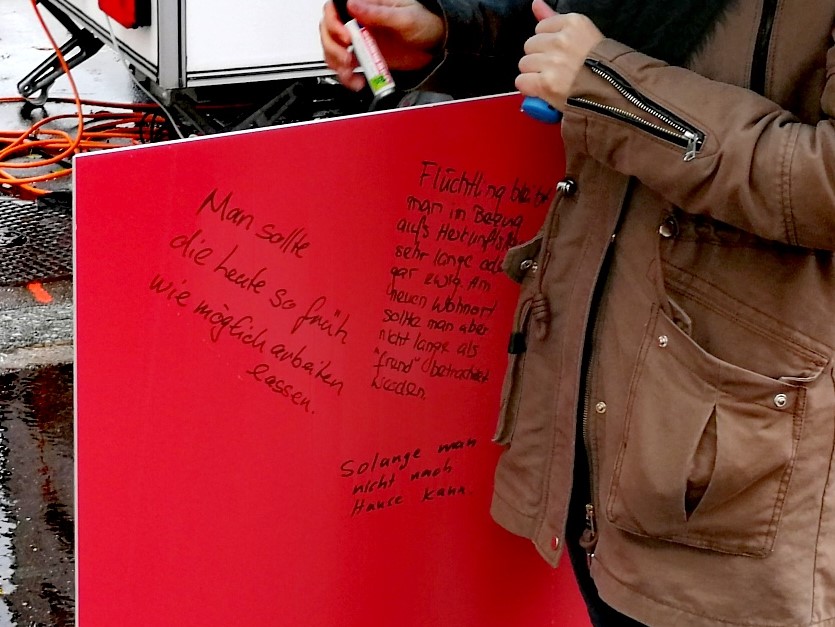 Man sollte
die heute so früh
wie möglich arbeiten
lassen.
Flüchtling bleibt
man in Bezug
aufs Herkunftsla
sehr lange ode
gar ewig. Am
neuen Wohnort
sollte man aber
nicht lange als
"fremd" betrachtet
werden.
Solange man
nicht nach
Hause kann.